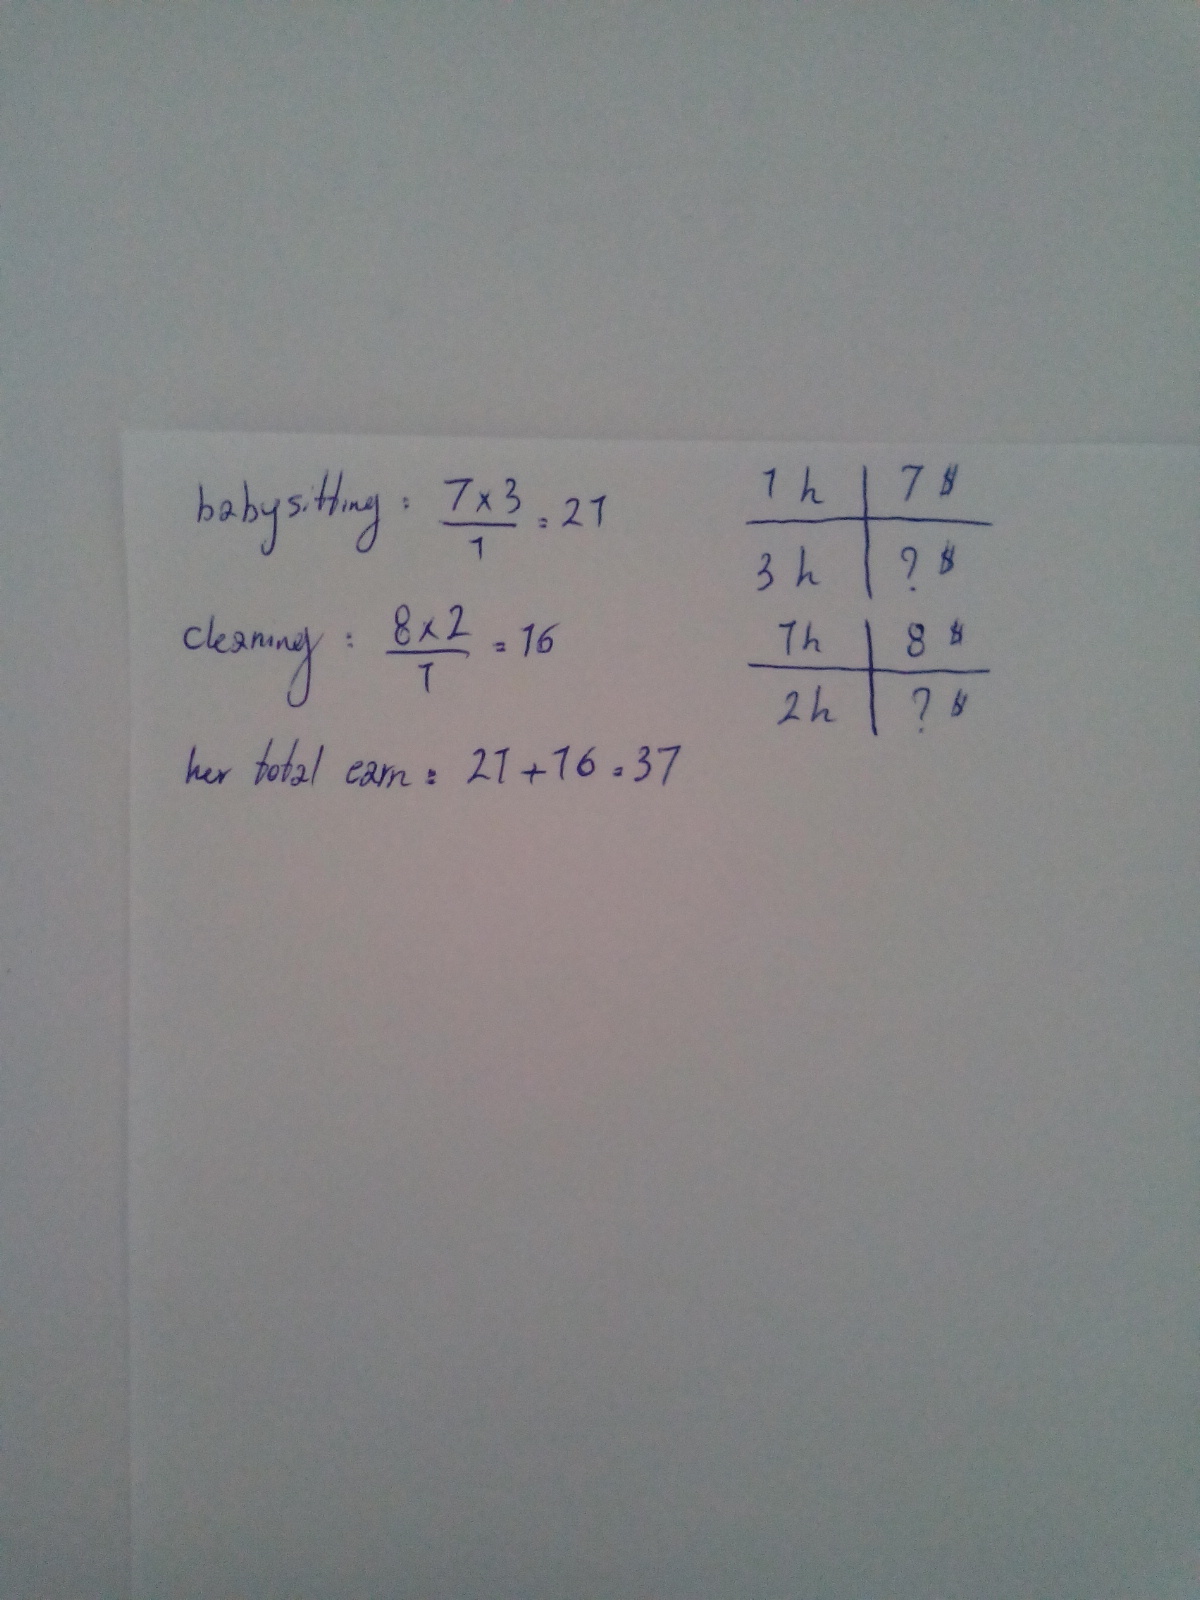 babysitting: 7 x 3 / 1 = 21
cleaning: 8 x 2 / 1 = 16
her total earn = 21 + 16 = 37
1 h | 7 $
3 h | ? $
1 h | 8 $
2 h | ? $